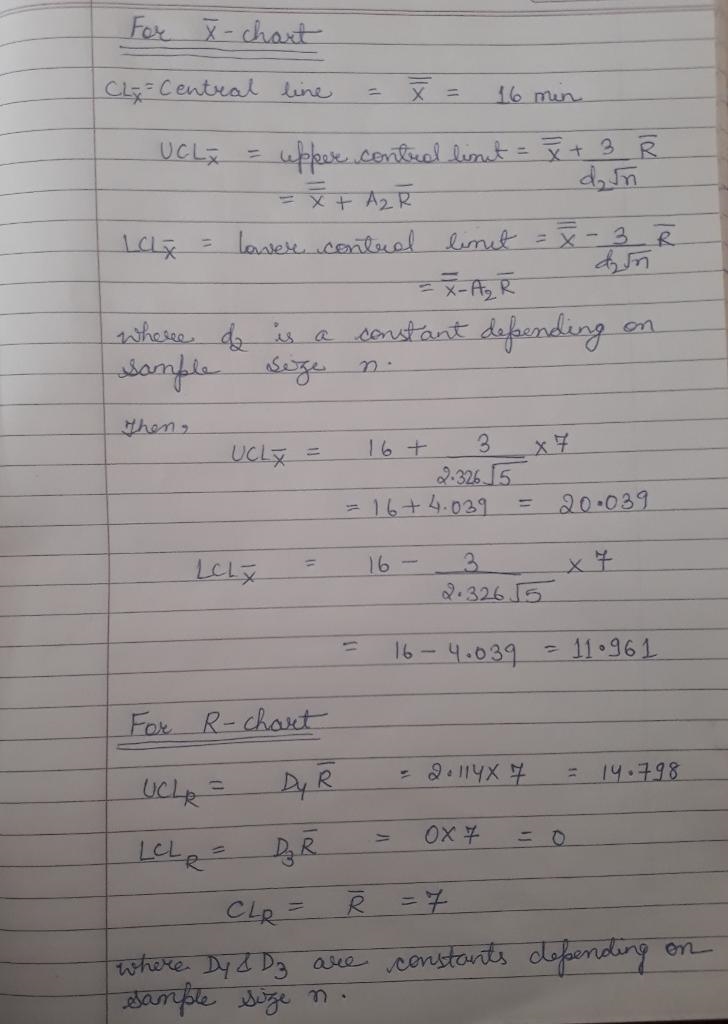 For x̄-chart
CLx̄ = Central line = x̿ = 16 min
UCLx̄ = upper control limit = x̿ + 3/(d₂√n) R̄
= x̿ + A₂R̄
LCLx̄ = lower control limit = x̿ - 3/(d₂√n) R̄
= x̿ - A₂R̄
where d₂ is a constant depending on
sample size n.
Then,
UCLx̄ = 16 + 3/(2.326√5) × 7
= 16 + 4.039 = 20.039
LCLx̄ = 16 - 3/(2.326√5) × 7
= 16 - 4.039 = 11.961
For R-chart
UCLR = D₄R̄ = 2.114 × 7 = 14.798
LCLR = D₃R̄ = 0 × 7 = 0
CLR = R̄ = 7
where D₄ & D₃ are constants depending on
sample size n.